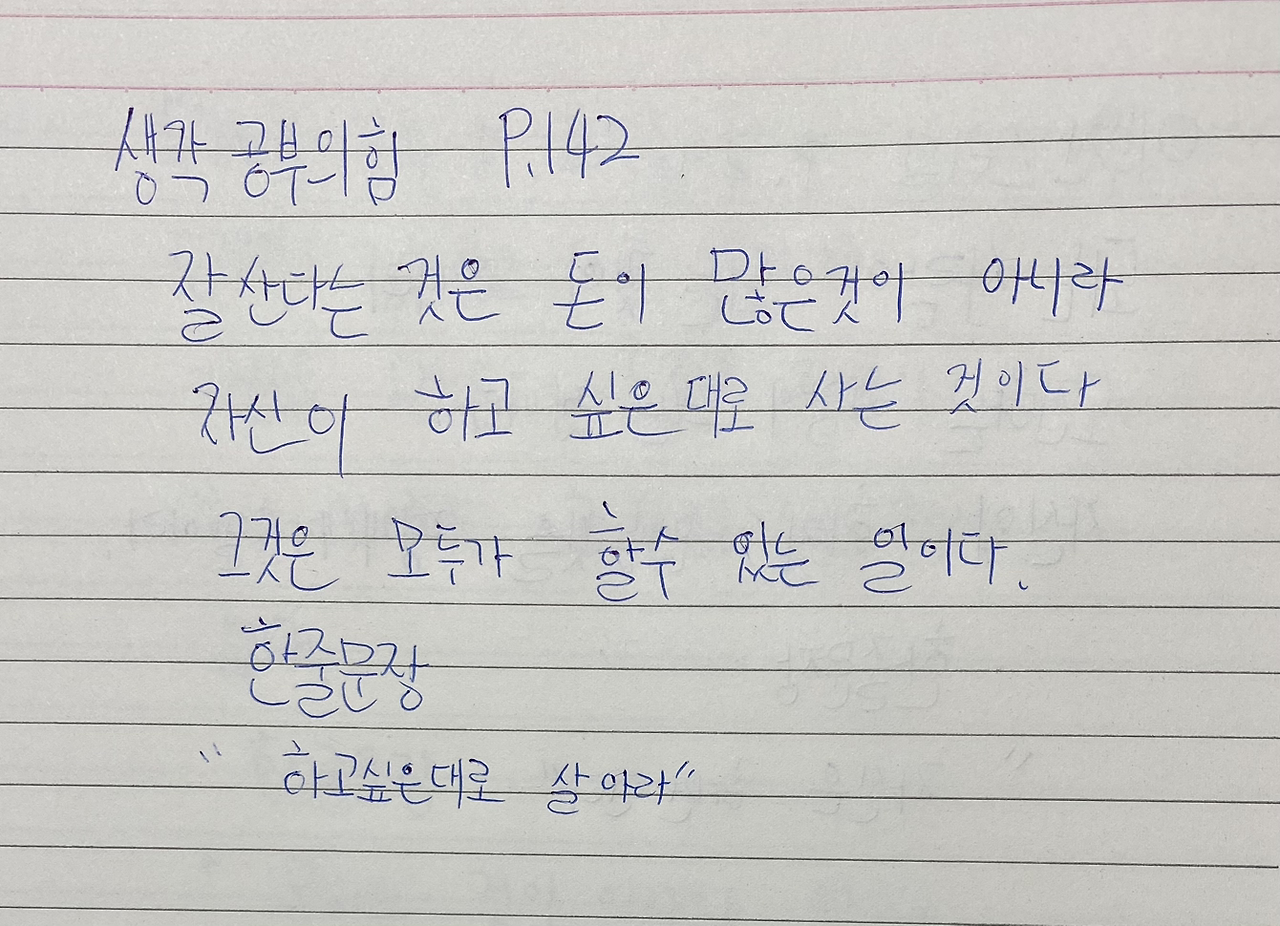 생각 공부의 힘 P.142
잘 산다는 것은 돈이 많은것이 아니라
자신이 하고 싶은대로 사는 것이다
그것은 모두가 할수 있는 일이다.
한줄문장
“하고싶은대로 살아라”